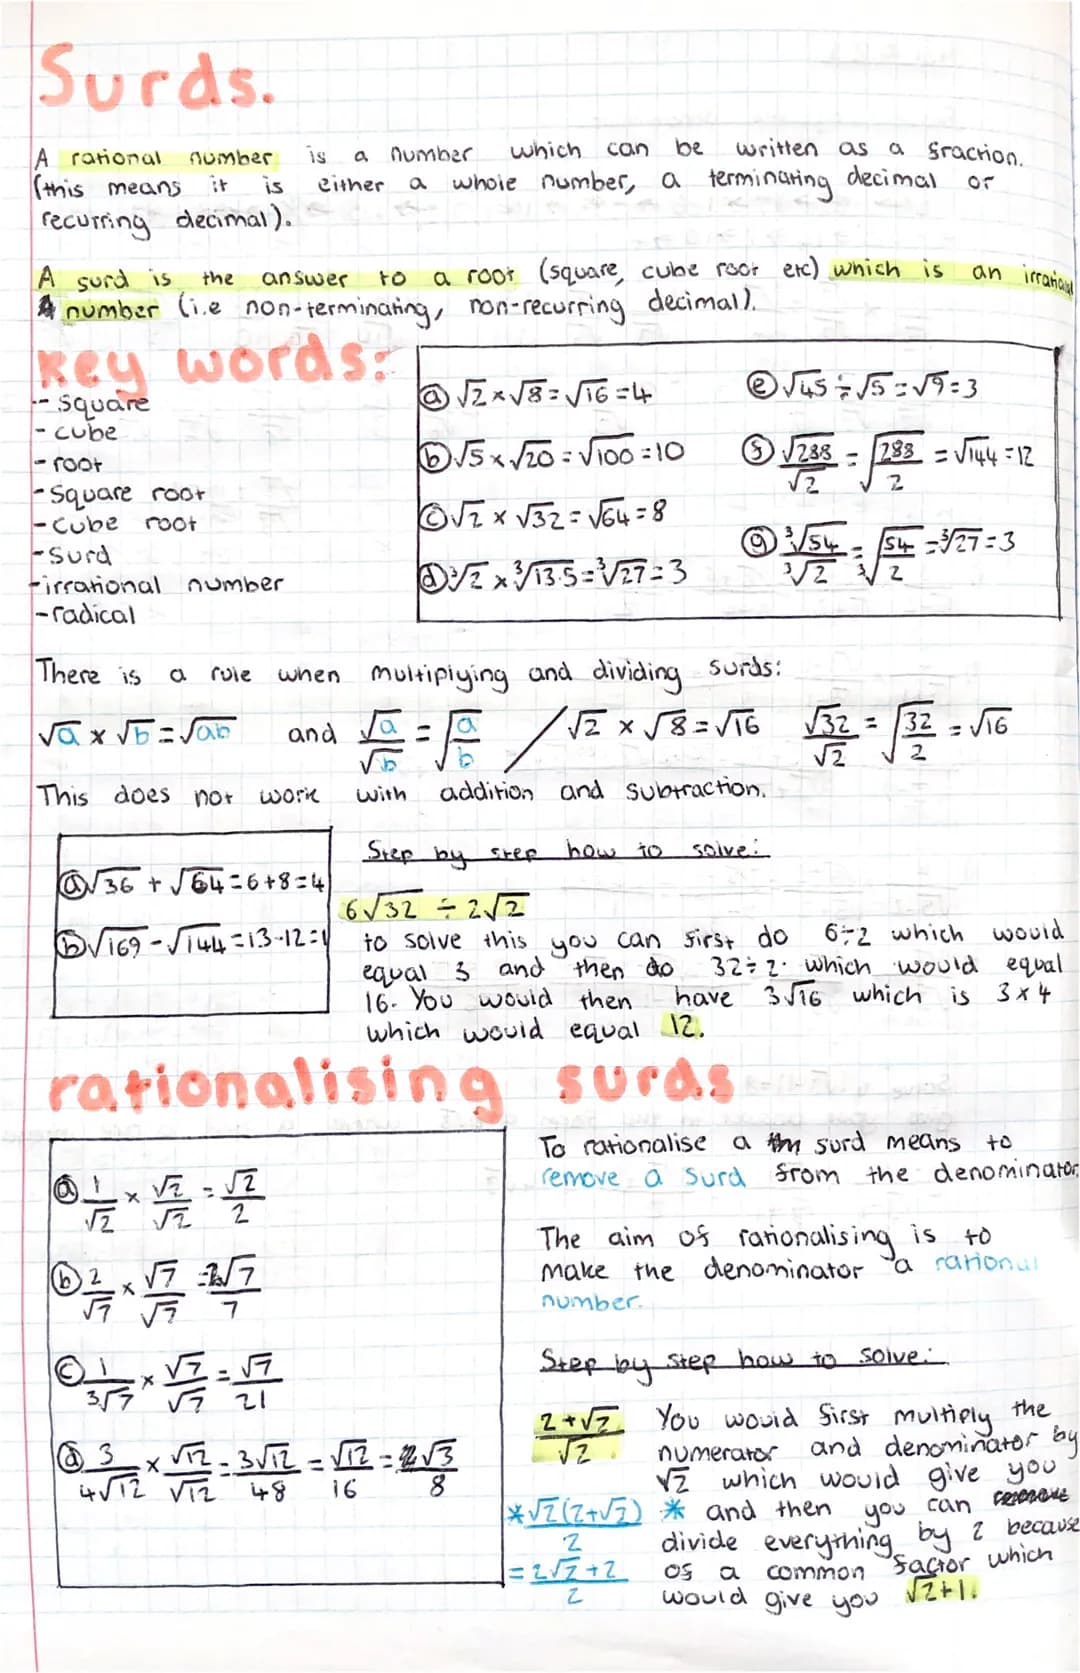 Surds.
A rational number is a number which can be written as a fraction.
(this means it is either a whole number, a terminating decimal or
recurring decimal).
A surd is the answer to a root (square, cube root etc) which is an irrational
number (i.e non-terminating, non-recurring decimal).
key words:
- square
- cube
- root
- Square root
- Cube root
- Surd
- irrational number
- radical
ⓐ √2 × √8 = √16 = 4
ⓑ √5 × √20 = √100 = 10
ⓒ √2 × √32 = √64 = 8
ⓓ ³√2 × ³√13.5 = ³√27 = 3
ⓔ √45 ÷ √5 = √9 = 3
ⓕ √288/√2 = √(288/2) = √144 = 12
ⓖ ³√54/³√2 = ³√(54/2) = ³√27 = 3
There is a rule when multiplying and dividing surds:
√a × √b = √ab and √a/√b = √(a/b) / √2 × √8 = √16 √32/√2 = √(32/2) = √16
This does not work with addition and subtraction.
ⓐ √36 + √64 = 6+8=4
ⓑ √169 - √144 = 13-12=1
Step by step how to solve:
6√32 ÷ 2√2
to solve this you can first do 6÷2 which would
equal 3 and then do 32÷2. which would equal
16. You would then have 3√16 which is 3×4
which would equal 12.
rationalising surds
ⓐ 1/√2 × √2/√2 = √2/2
ⓑ 2/√7 × √7/√7 = 2√7/7
ⓒ 1/3√7 × √7/√7 = √7/21
ⓓ 3/4√12 × √12/√12 = 3√12/48 = √12/16 = √3/8
To rationalise a surd means to
remove a surd from the denominator.
The aim of rationalising is to
make the denominator a rational
number.
Step by step how to solve:
(2+√2)/√2 You would first multiply the
numerator and denominator by
√2 which would give you
*√2(2+√2)/2 * and then you can
divide everything by 2 because
= (2√2+2)/2 of a common factor which
would give you √2+1.